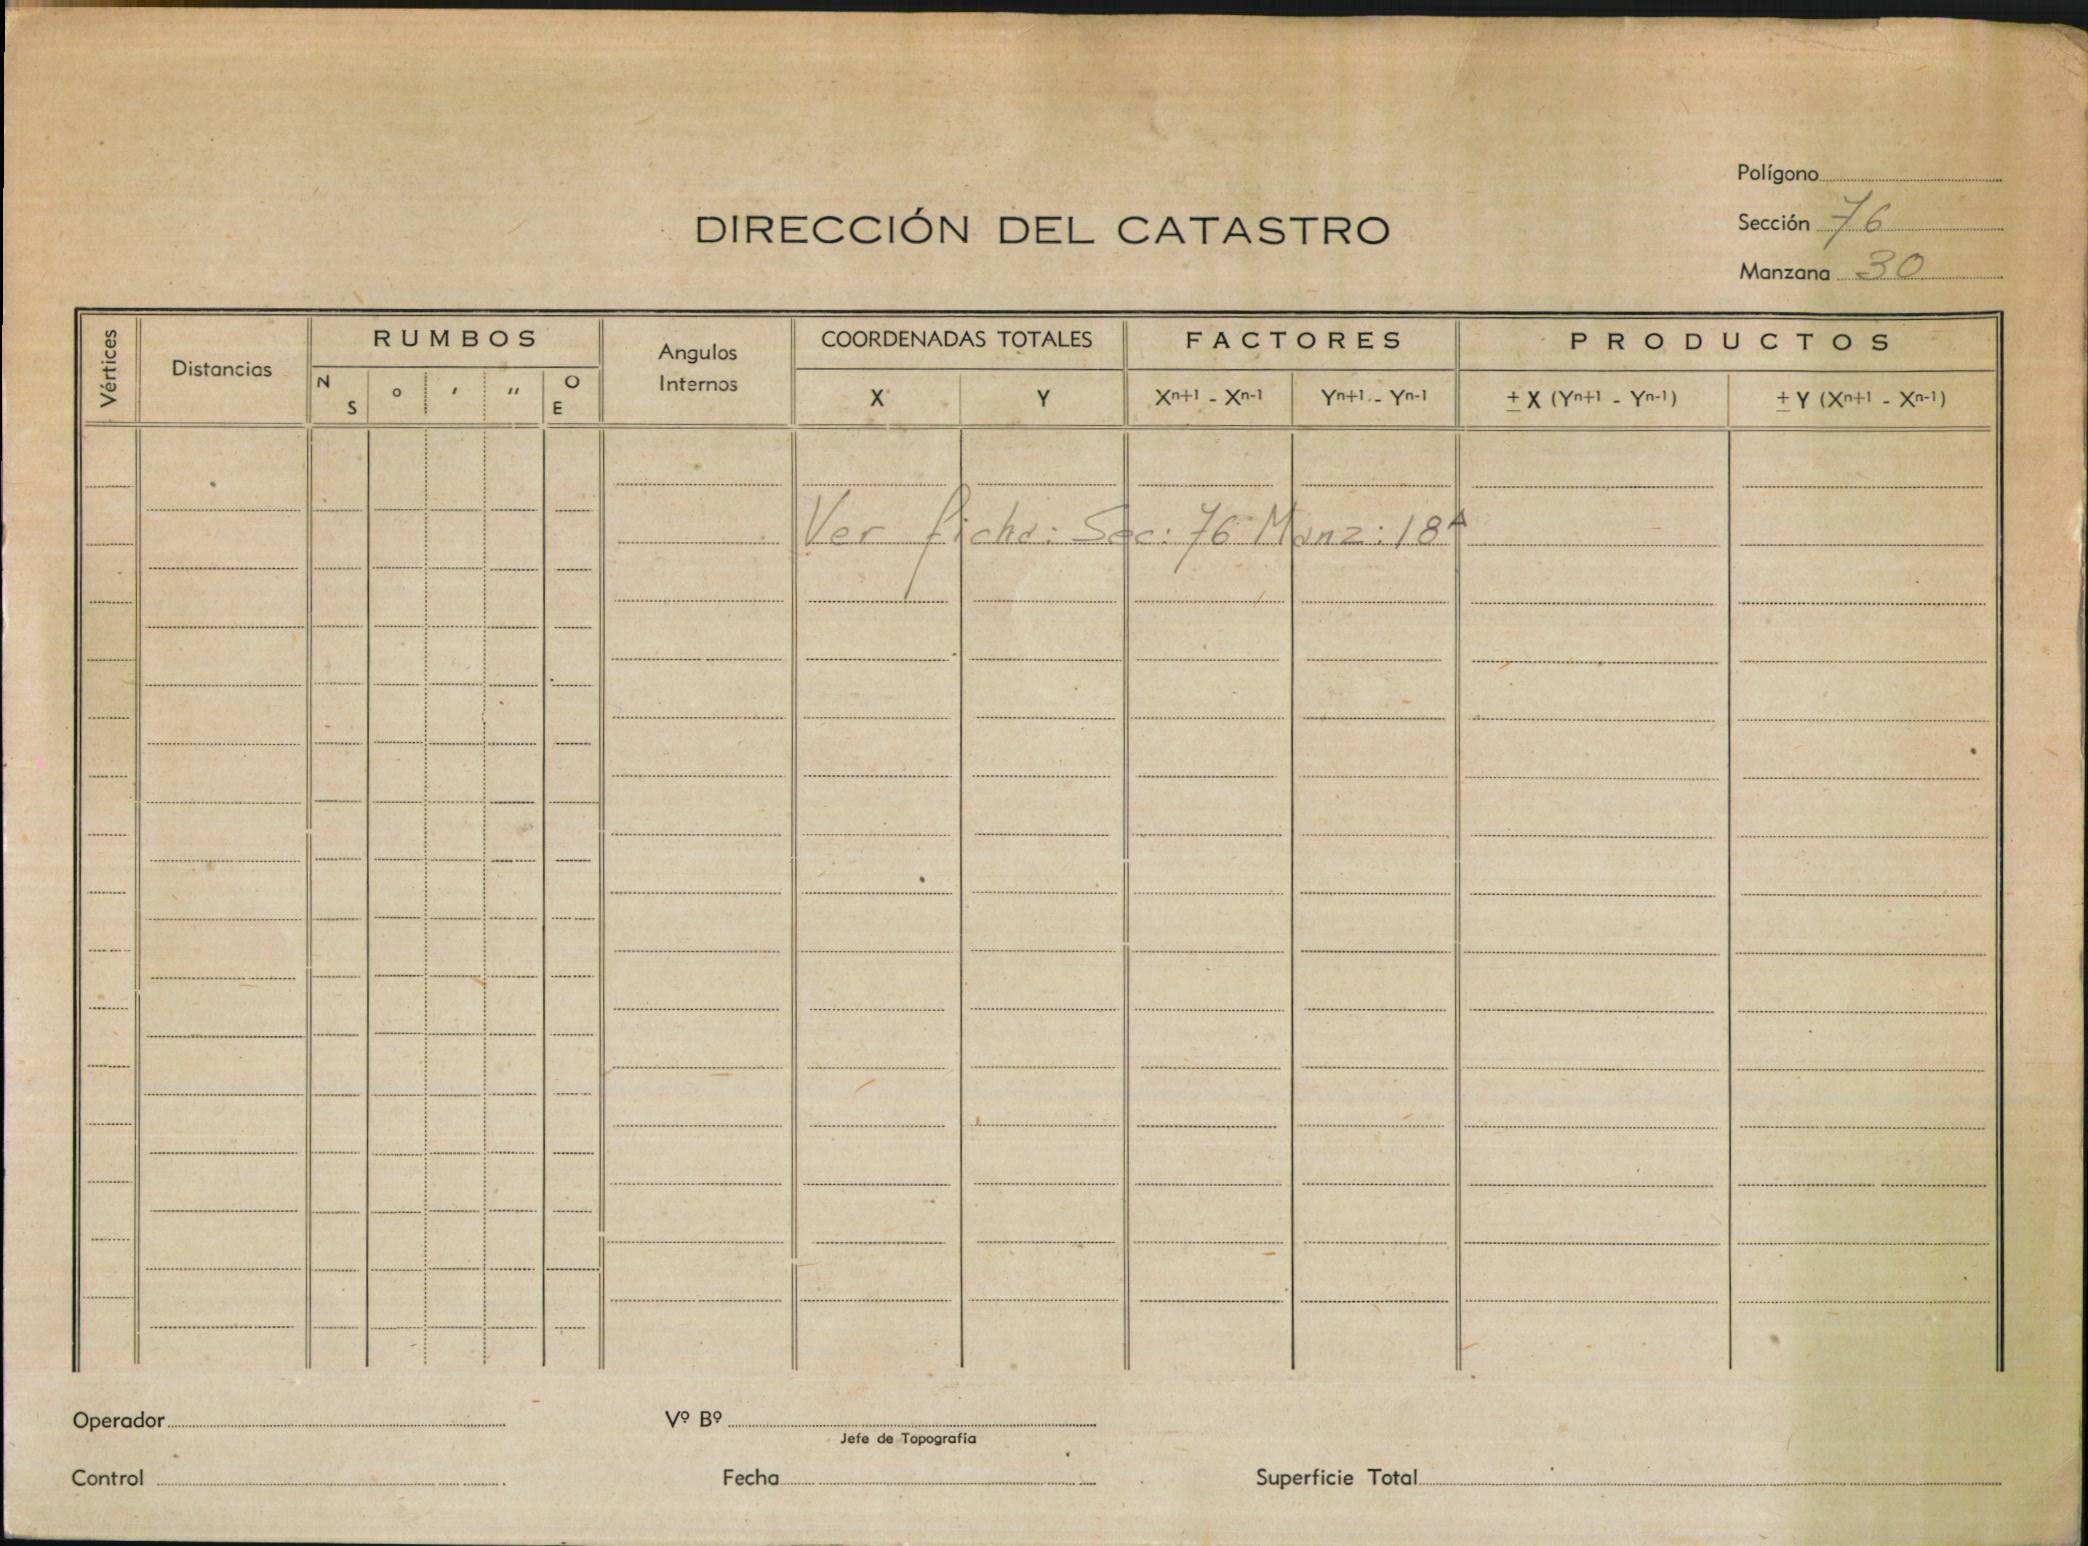 Polígono
DIRECCIÓN DEL CATASTRO
Sección 76
Manzana 30
Vértices
Distancias
RUMBOS
N S ° ' '' O E
Angulos
Internos
COORDENADAS TOTALES
X Y
FACTORES
Xⁿ⁺¹ - Xⁿ⁻¹ Yⁿ⁺¹ - Yⁿ⁻¹
PRODUCTOS
± X (Yⁿ⁺¹ - Yⁿ⁻¹) ± Y (Xⁿ⁺¹ - Xⁿ⁻¹)
Ver ficha: Sec: 76 Manz: 18ᴬ
Operador
Vº Bº
Jefe de Topografía
Control
Fecha
Superficie Total